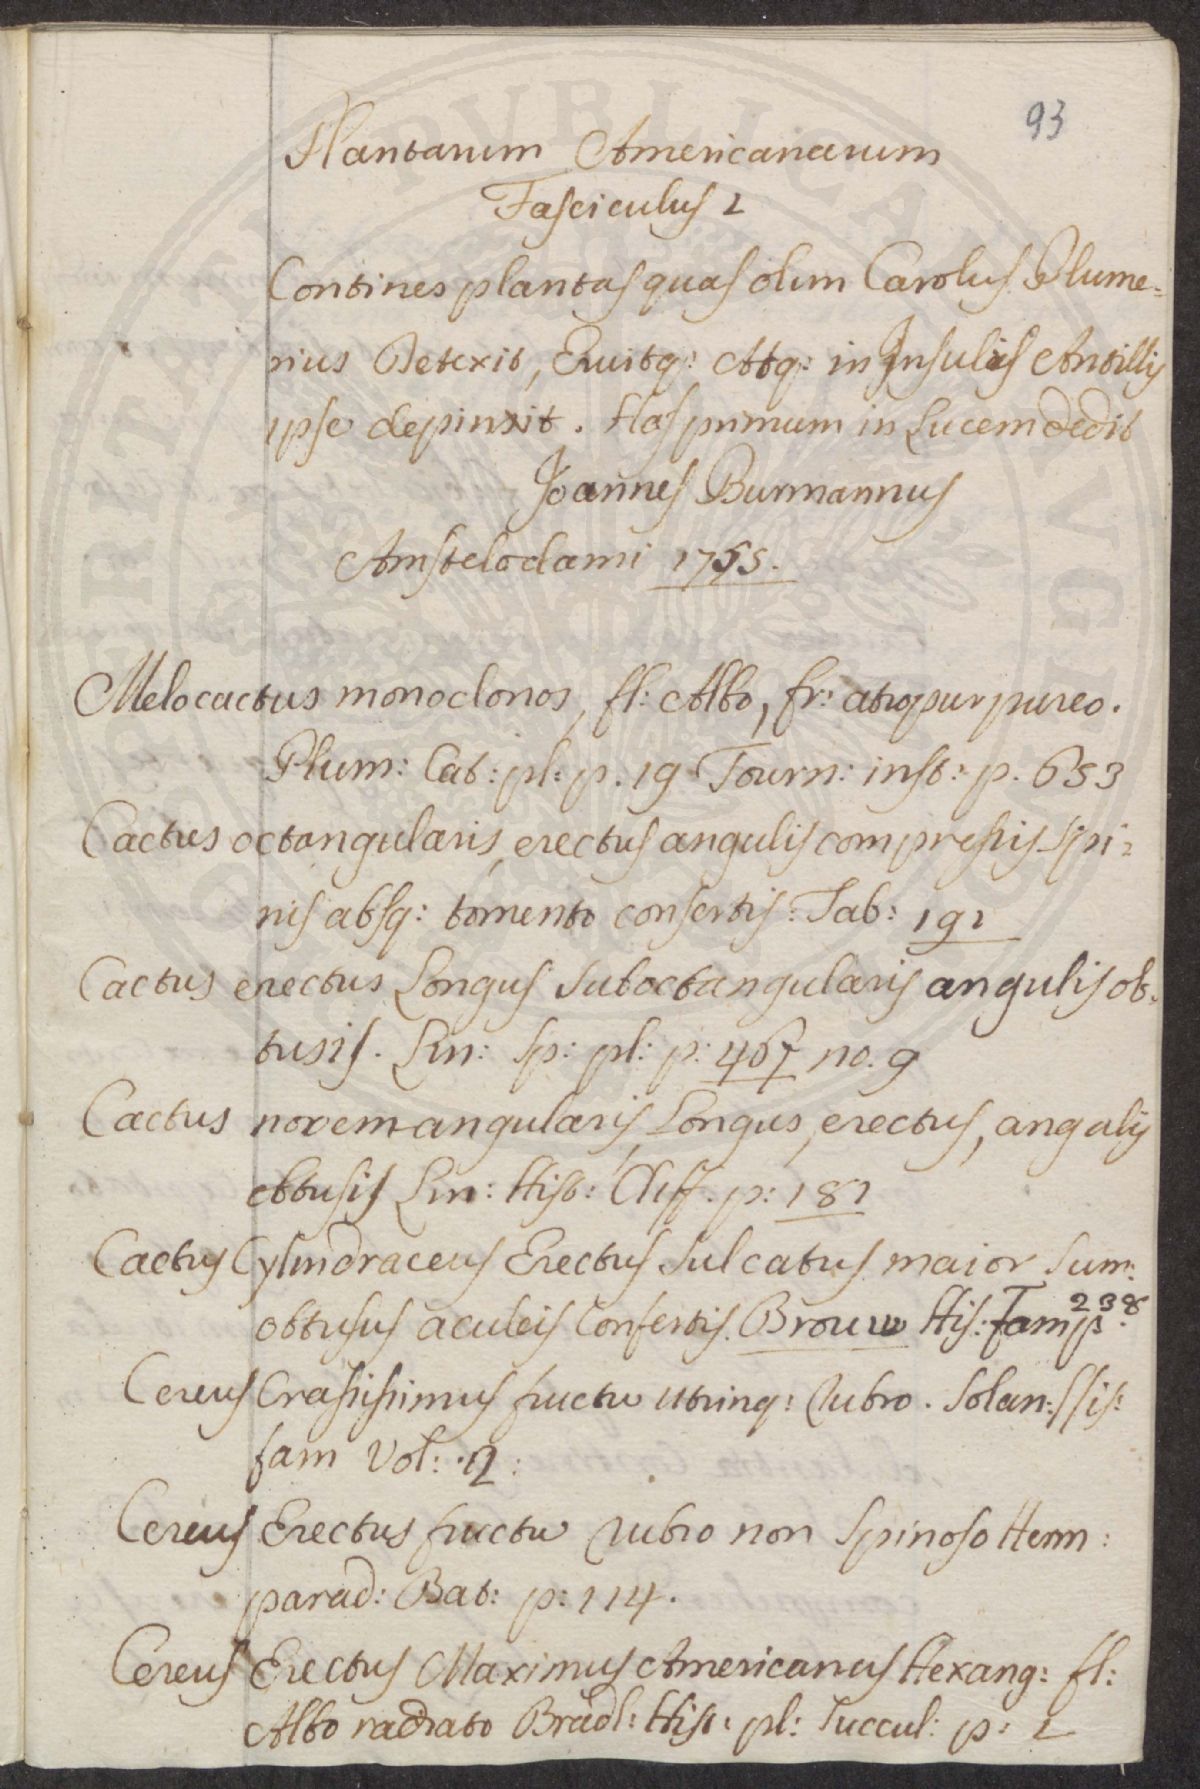 93
Plantarum Americanarum
Fasciculus 1
Contines plantas quas olim Carolus Plume=
rius Detexit, Eruitq: Atq: in Insulis Antillis
ipse depinxit. Has primum in Lucem dedit
Joannes Burmannus
Amstelodami 1755.
Melocactus monoclonos, fl: Albo, fr: atropurpureo.
Plum: Cat: pl: p. 19 Tourn: inst: p. 653
Cactus octangularis, erectus angulis compressis spi=
nis absq: tomento consertis: Tab: 191
Cactus erectus Longus Suboctangularis angulis ob=
tusis. Lin: Sp: pl: p: 467 no. 9
Cactus novemangularis, Longus, erectus, angulis
obtusis Lin: Hist: Cliff. p: 181
Cactus Cylindraceus Erectus Sulcatus maior Sum:
obtusus aculeis Confertis. Brouw His: Jam p: 238
Cereus Crassissimus fructu utrinq: rubro. Soan: His:
jam Vol: 2:
Cereus Erectus fructu rubro non Spinoso Herm:
parad: Bat: p: 114.
Cereus Erectus Maximus Americanus Hexang: fl:
Albo radiato Bradl: Hist: pl: Succul: p: 1
PUBLICA